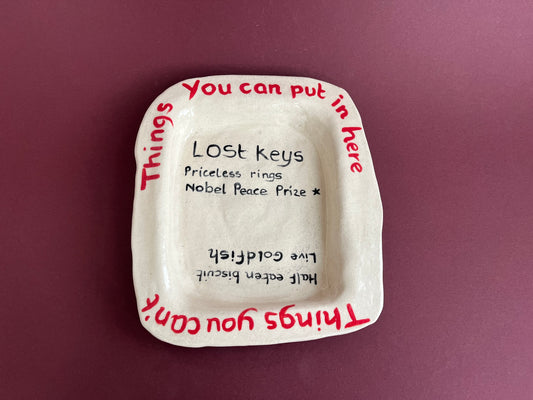 Things You can put in here
LOSt Keys
Priceless rings
Nobel Peace Prize *
Things you can't
Half eaten biscuit
Live Goldfish